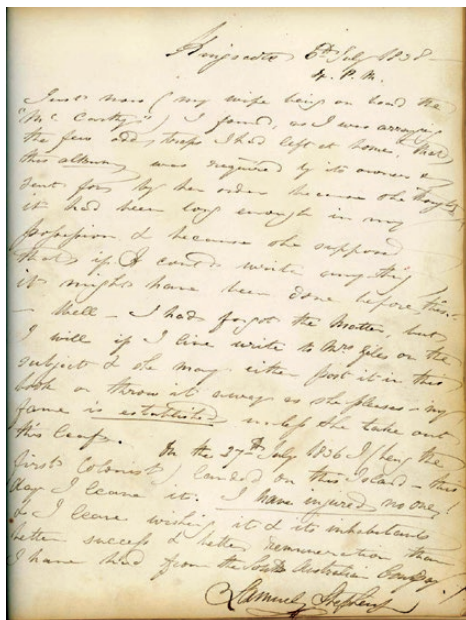 Kingscote 6th July 1838 -
4. P. M.
Just now (my wife being on board the
"Mc Carthy") I found, as I was arranging
the few odd traps I had left at home, that
this album was required by its owners &
sent for by her order because she thought
it had been long enough in my
possession & because she supposed
that if I could write anything
it might have been done before this.
- Well - I had forgot the Matter, but
I will if I live write to Mrs Giles on the
subject & she may either post it in this
book or throw it away as she pleases - my
fame is established unless she take out
this leaf. On the 27th July 1836 I (being the
first Colonist) landed on this Island - this
day I leave it. I have injured no one!
& I leave wishing it & its inhabitants
better success & better remuneration than
I have had from the South Australian Company!
Samuel Stephens